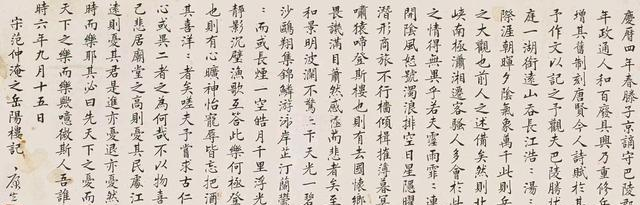 慶曆四年春滕子京謫守巴陵郡
年政通人和百廢具興乃重修岳
增其舊制刻唐賢今人詩賦於其
予作文以記之予觀夫巴陵勝狀
庭一湖銜遠山吞長江浩:湯:
際涯朝暉夕陰氣象萬千此則岳
之大觀也前人之述備矣然則北
峽南極瀟湘遷客騷人多會於此
之情得無異乎若夫霪雨霏:連
開陰風怒號濁浪排空日星隱曜
潛形商旅不行檣傾楫摧薄暮冥
嘯猿啼登斯樓也則有去國懷鄉
畏譏滿目蕭然感極而悲者矣至
和景明波瀾不驚上下天光一碧
沙鷗翔集錦鱗游泳岸芷汀蘭鬱
:而或長煙一空皓月千里浮光
靜影沉璧漁歌互答此樂何極登
也則有心曠神怡寵辱皆忘把酒
其喜洋:者矣嗟夫予嘗求古仁
心或異二者之為何哉不以物喜
己悲居廟堂之高則憂其民處江
遠則憂其君是進亦憂退亦憂然
時而樂耶其必曰先天下之憂而
天下之樂而樂歟噫微斯人吾誰
時六年九月十五日
宋范仲淹之岳陽樓記